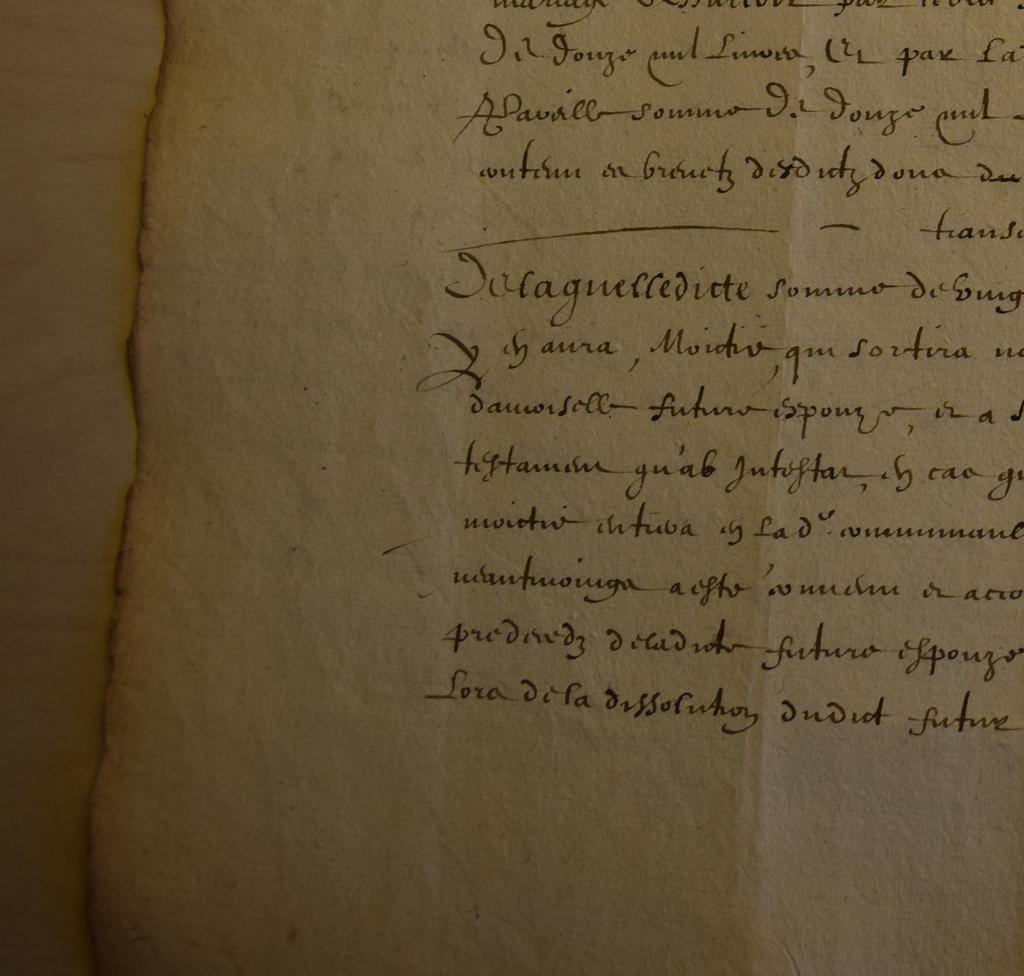 mariage
De douze mil Livres, Et par La
Pareille somme De douze mil
contenu es brevetz desdictz dons du
trans
De laquelle dicte somme de ving
Y en aura, Moictié, qui sortira
damoiselle future espouze, et a s
testament qu'ab Intestat, en cas qu
moictié entrera en Lad. communaul
neantmoings a esté convenu et acco
predecedz de ladicte future espouze
Lors de la dissolution dudict futur